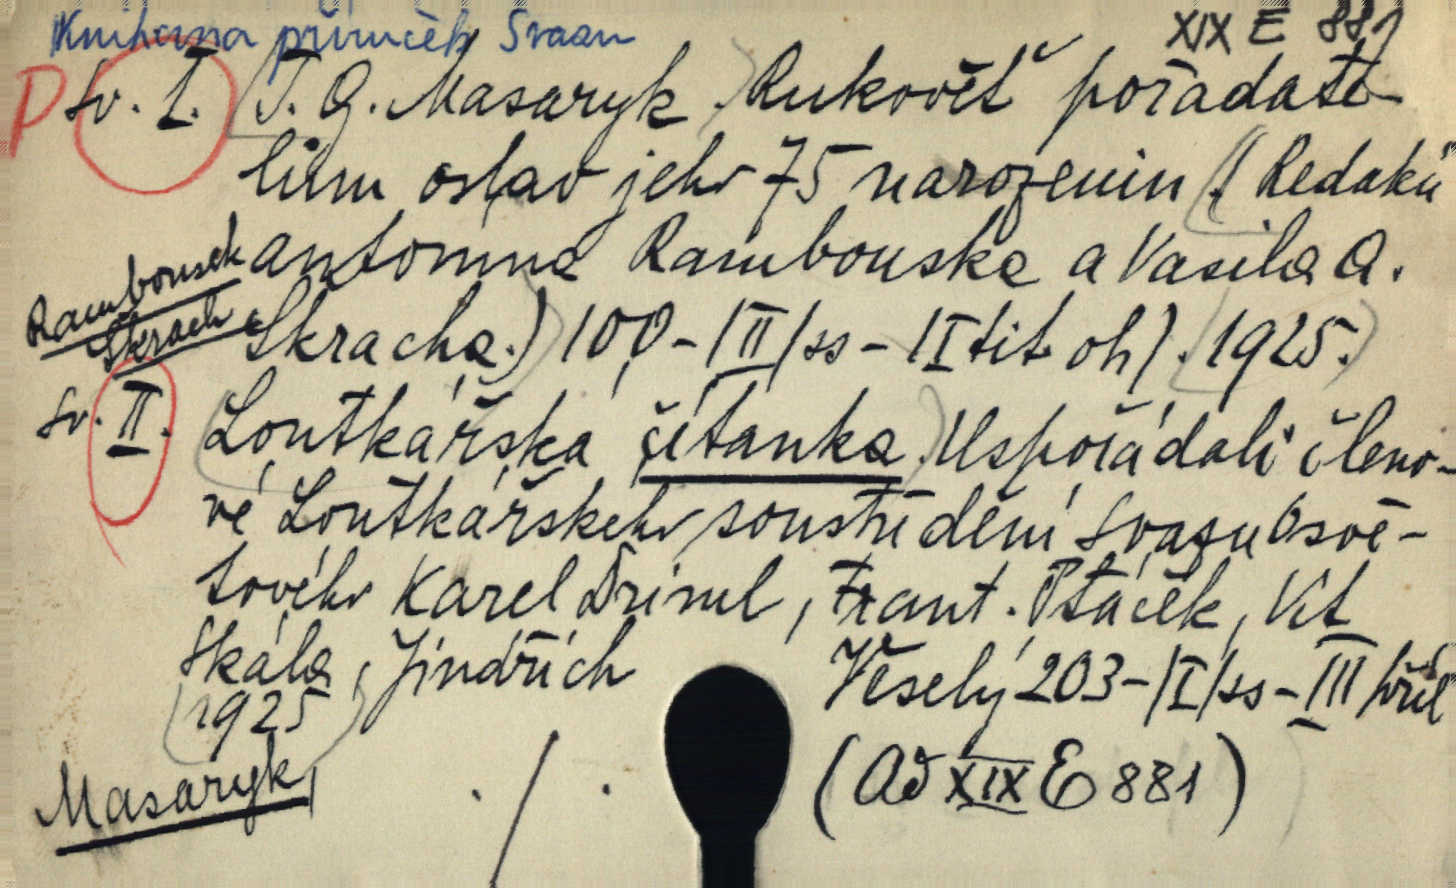 Knihovna příruček Svazu XIX E 881
P Sv. I. T. G. Masaryk. Rukověť pořadate-
lům oslav jeho 75 narozenin. (Redakcí
Rambousek Antonína Rambouska a Vasila A.
Škrach Škracha.) 100-|II|ss-|I tit oh|. 1925.
Sv. II. Loutkářská čítanka. Uspořádali členo-
vé Loutkářského soustředění Svazu Osvě-
tového Karel Driml, Frant. Ptáček, Vít
Skála, Jindřich Veselý 203-|I|ss-III příl
1925
Masaryk (Ad XIX E 881)